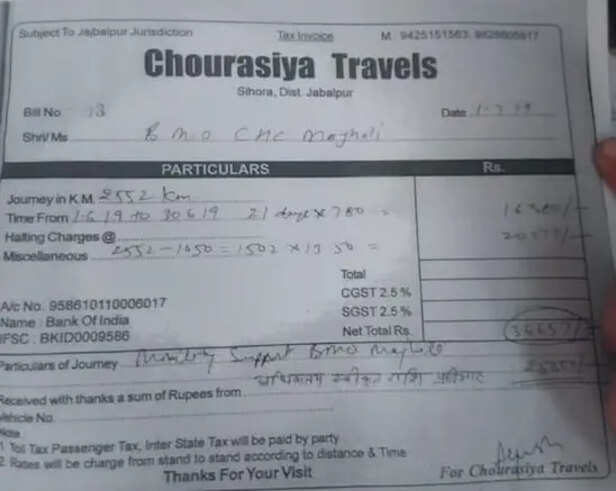 Subject To Jabalpur Jurisdiction Tax Invoice M. 9425151563, 9826606817
Chourasiya Travels
Sihora, Dist. Jabalpur
Bill No. 13 Date 1.7.19
Shri/Ms B M O CHC Majholi
PARTICULARS Rs.
Journey in K.M. 2552 km
Time From 1.6.19 to 30.6.19 21 days × 780 = 16380/-
Halting Charges @
Miscellaneous 2552-1050=1502 × 13.50 = 20277/-
Total
CGST 2.5 %
SGST 2.5 %
Net Total Rs. 36657/-
A/c No. 958610110006017
Name : Bank Of India
IFSC : BKID0009586
Particulars of Journey Mobility Support BMO Majholi
अधिकतम स्वीकृत राशि
Received with thanks a sum of Rupees from
Vehicle No.
Note
1. Toll Tax Passenger Tax, Inter State Tax will be paid by party
2. Rates will be charge from stand to stand according to distance & Time
Thanks For Your Visit For Chourasiya Travels